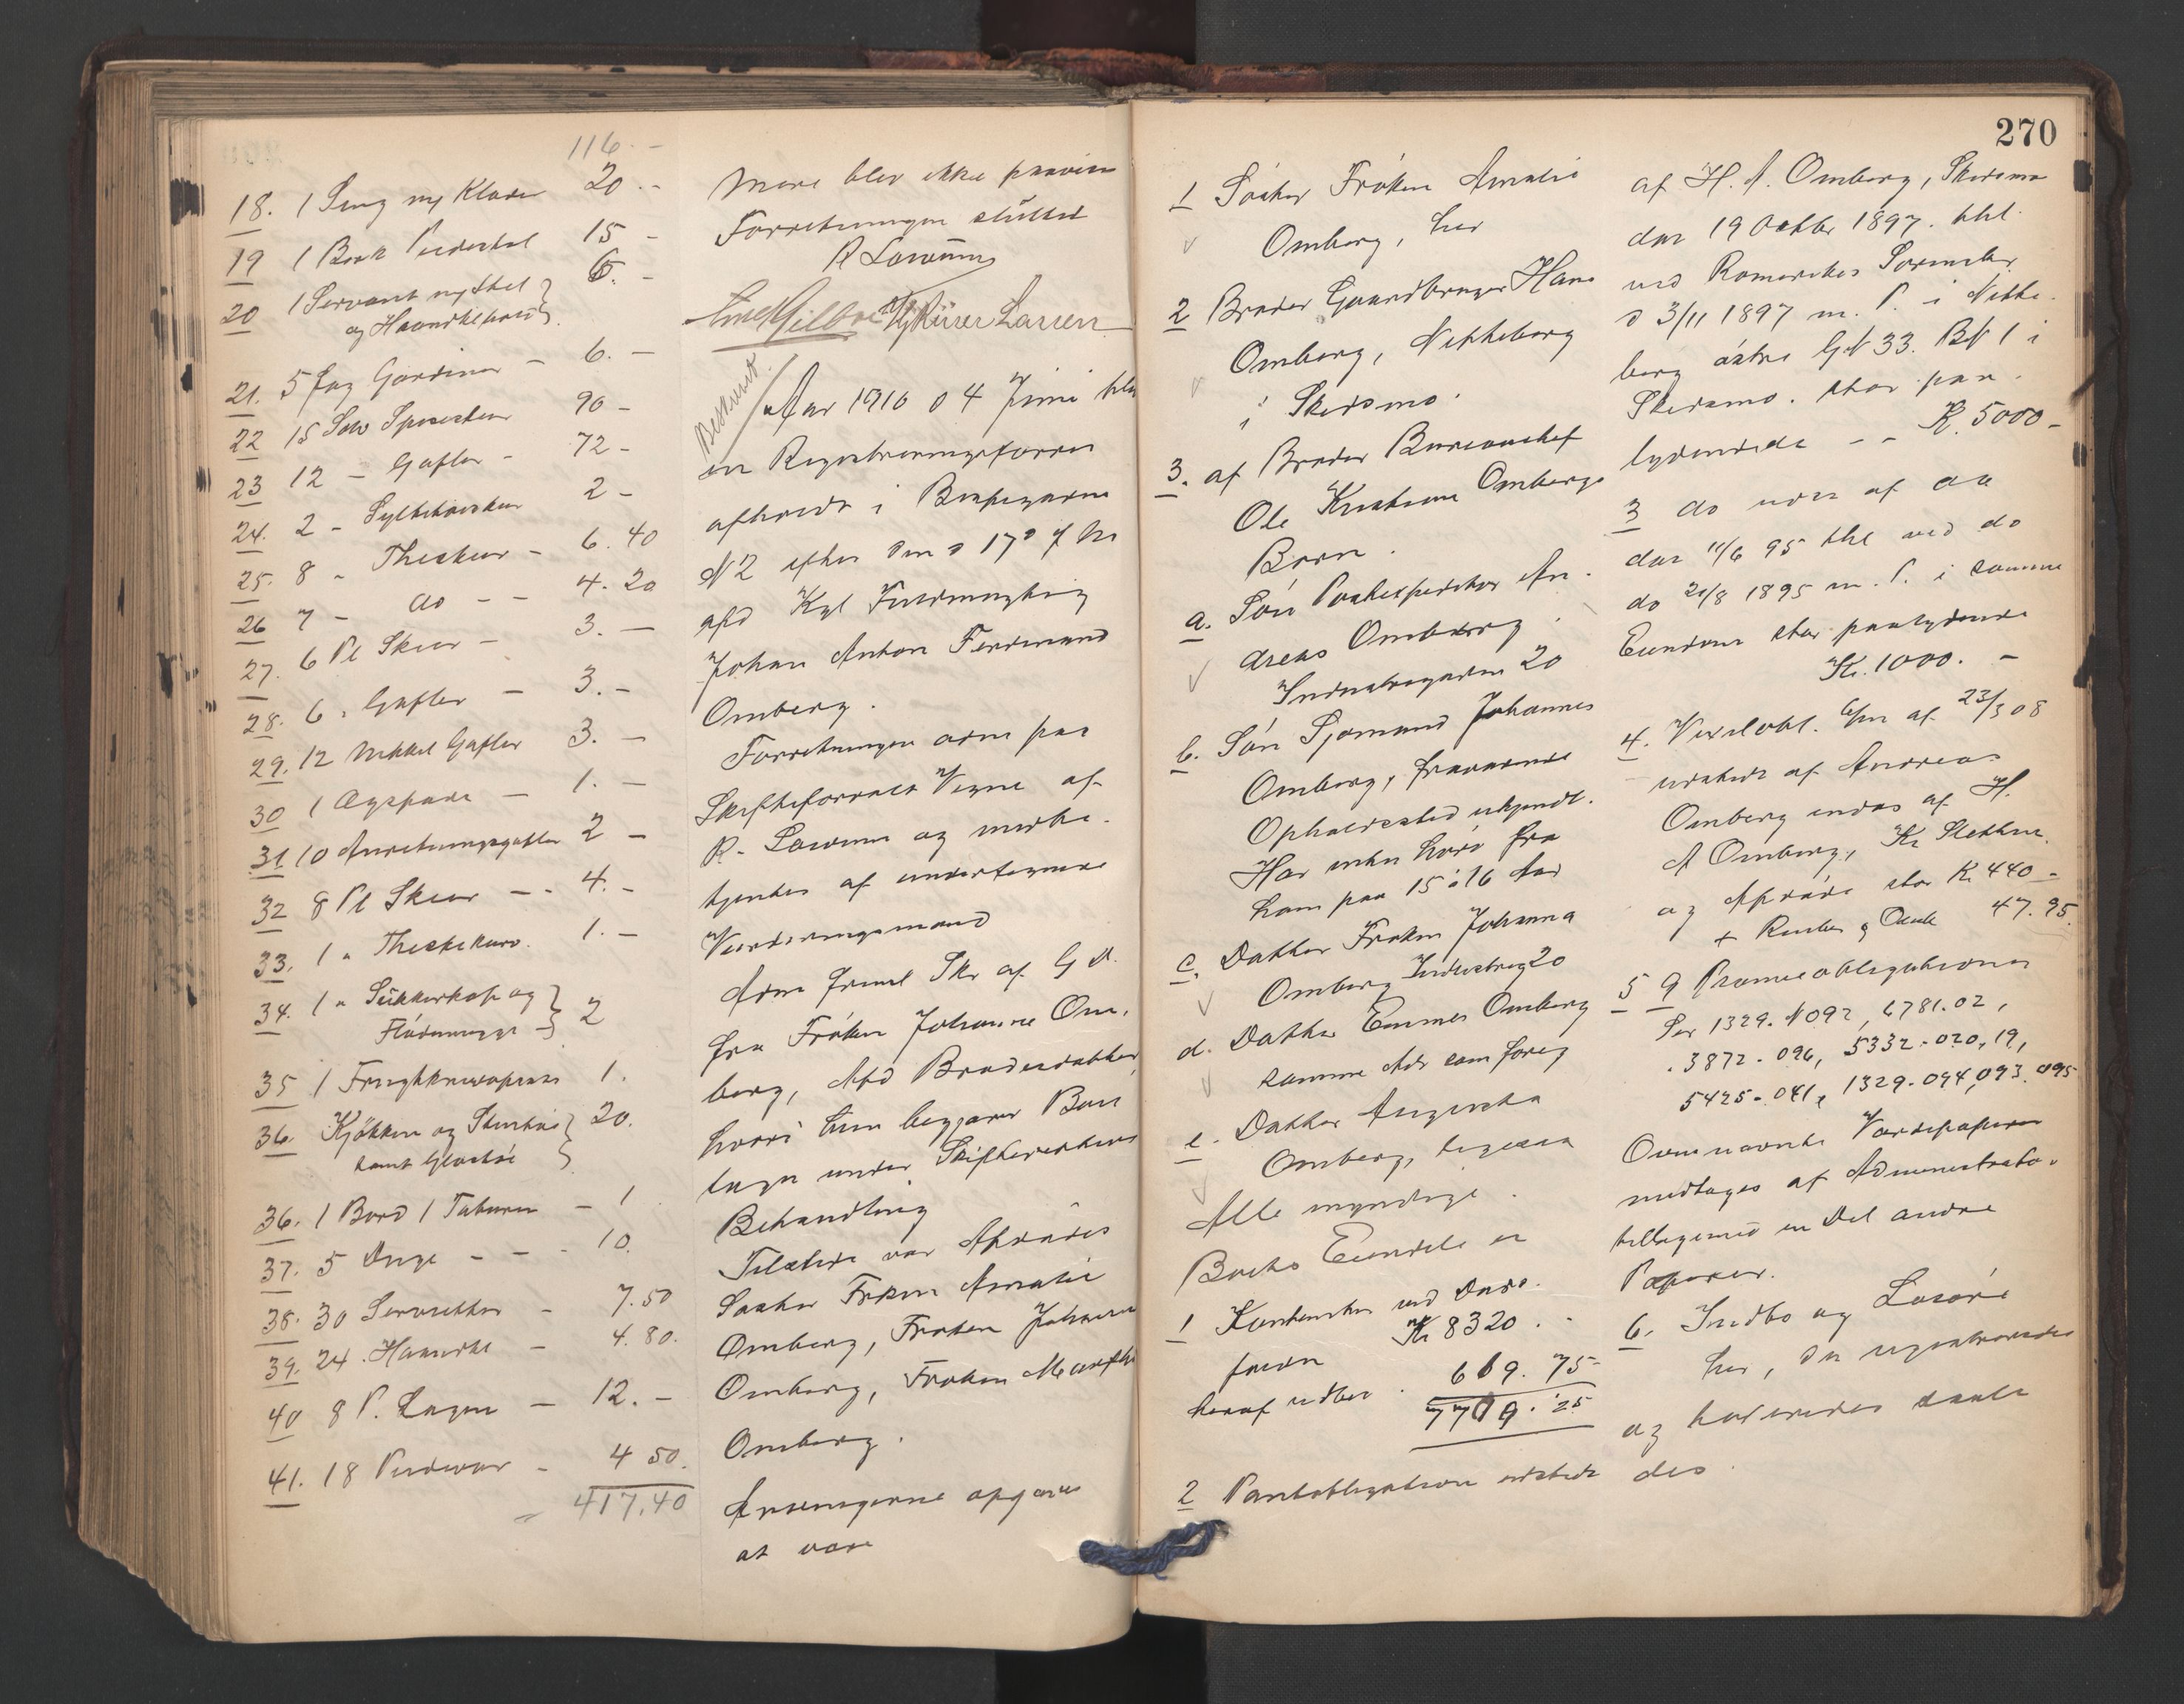 116. -
18. 1 Seng m/ Klæder 20. -
19 1 Book Piedestal 15 -
20 1 Servant m/ Stel
og Haandklæ
6. -
21. 5 Fag Gardiner - 6. -
22 15 Sølv Spiseskeer 90 -
23 12 - Gafler - 72 -
24. 2 - Syltetøiskeer 2 -
25. 8 - Theskeer - 6.40
26 7 - do - - 4.20
27. 6 Pl Skeer - 3. -
28. 6 " Gafler - 3. -
29. 12 Nikkel Gafler 3. -
30 1 Ægspade - 1. -
31 10 Anretningsgafler 2 -
32 8 Pl Skeer - - 4. -
33. 1 " Theskekurv. 1. -
34. 1 " Sukkerkop og
Flødemugge
2
35 1 Frugtknivs 1.
36. Kjøkken og Stentøi
samt Glastøi
20.
36. 1 Bord 1 Taburet - 1
37. 5 Duge - - - 10.
38. 30 Servietter - 7.50
39. 24 Haandkl - 4.80.
40 8 P. Lagen - 12. -
41. 18 Pudevar - 4 50.
417.40
Mere blev ikke paavist
Forretningen sluttet
R Sørum
Larsen
Beskrevet.
Aar 1910 d 4 Juni blev
en Registreringsforret
afholdt i Bispegaden
N 2 efter den d 17de f M
afd Kgl Fuldmægtig
Johan Anton Ferdinand
Omberg.
Forretningen adm paa
Skifteforvalt Vegne af
R. Sørum og undertegnede
Vurderingsmænd
Adm freml Skr af G D.
fra Frøken Johanne Om-
berg, Afd Broderdatter
hvori hun begjærer Boet
tagen under Skifterettens
Behandling
Tilstede var Afdødes
Søster Frøken Amalie
Omberg, Frøken Johanne
Omberg, Frøken Marthe
Omberg.
Arvingerne opgaves
at være
270
1 Søster Frøken Amalie
Omberg, her
2 Broder Gaardbruger Hans
Omberg, Nitteberg
i Skedsmo.
3. af Broder Bureauchef
Ole Kristian Ombergs
Børn.
a. Søn Postexpeditør An-
dreas Omberg,
Industrigaden 20
b. Søn Sjømand Johannes
Omberg, fraværende
Opholdssted ukjendt.
Har intet hørt fra
ham paa 15 à 16 Aar
c. Datter Frøken Johanna
Omberg Industrig 20
d. Datter Emma Omberg
samme Adr som forrig
e. Datter Augusta
Omberg, ligesaa
Alle myndige.
Boets Eiendele er
1 Kontanter ved Døds-
faldet Kr 8320. -
heraf udbet. 619.75
7709.25
2 Pantobligation udstedt
af H. A. Omberg, Skedsmo
dat 19 Oktbr 1897. thl.
ved Romerikes Sorenskr
d 3/11 1897 m. P. i Nitte-
berg østre GN 33. BN 1 i
Skedsmo. stor paa-
lydende - - K. 5000 -
3 do udst af do
dat 11/6 95 thl ved do
do 21/8 1895 m. P. i samme
Eiendom stor paalydende
Kr. 1000. -
4. Vexelobl. af 23/3 08
udstedt af Andreas
Omberg endos af H.
A Omberg, Kr
og Afdøde stor Kr 440 -
+ Renter & Omk 47.95.
5 9 Præmieobligationer
Ser 1329. N 092, 6781.02,
3872 - 096, 5332 - 020, 19,
5425 - 041, 1329 - 094, 093. 095
Ovennævnte Værdipapirer
modtages af Administrator
tilligemed en Del andre
Papirer.
6. Indbo og Løsøre
her, der registreredes
og taxeredes saale
des.